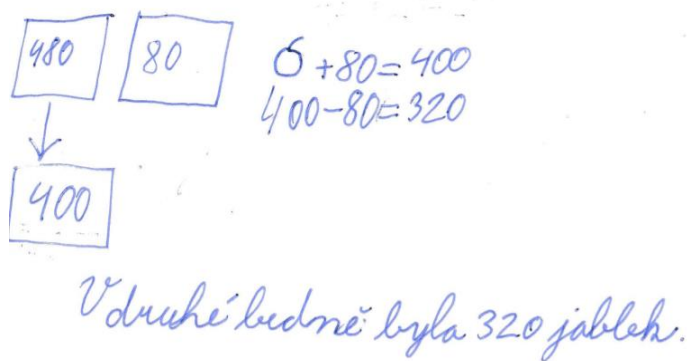 480 80 6 + 80 = 400
400 - 80 = 320
400
V druhé bedně byla 320 jablek.